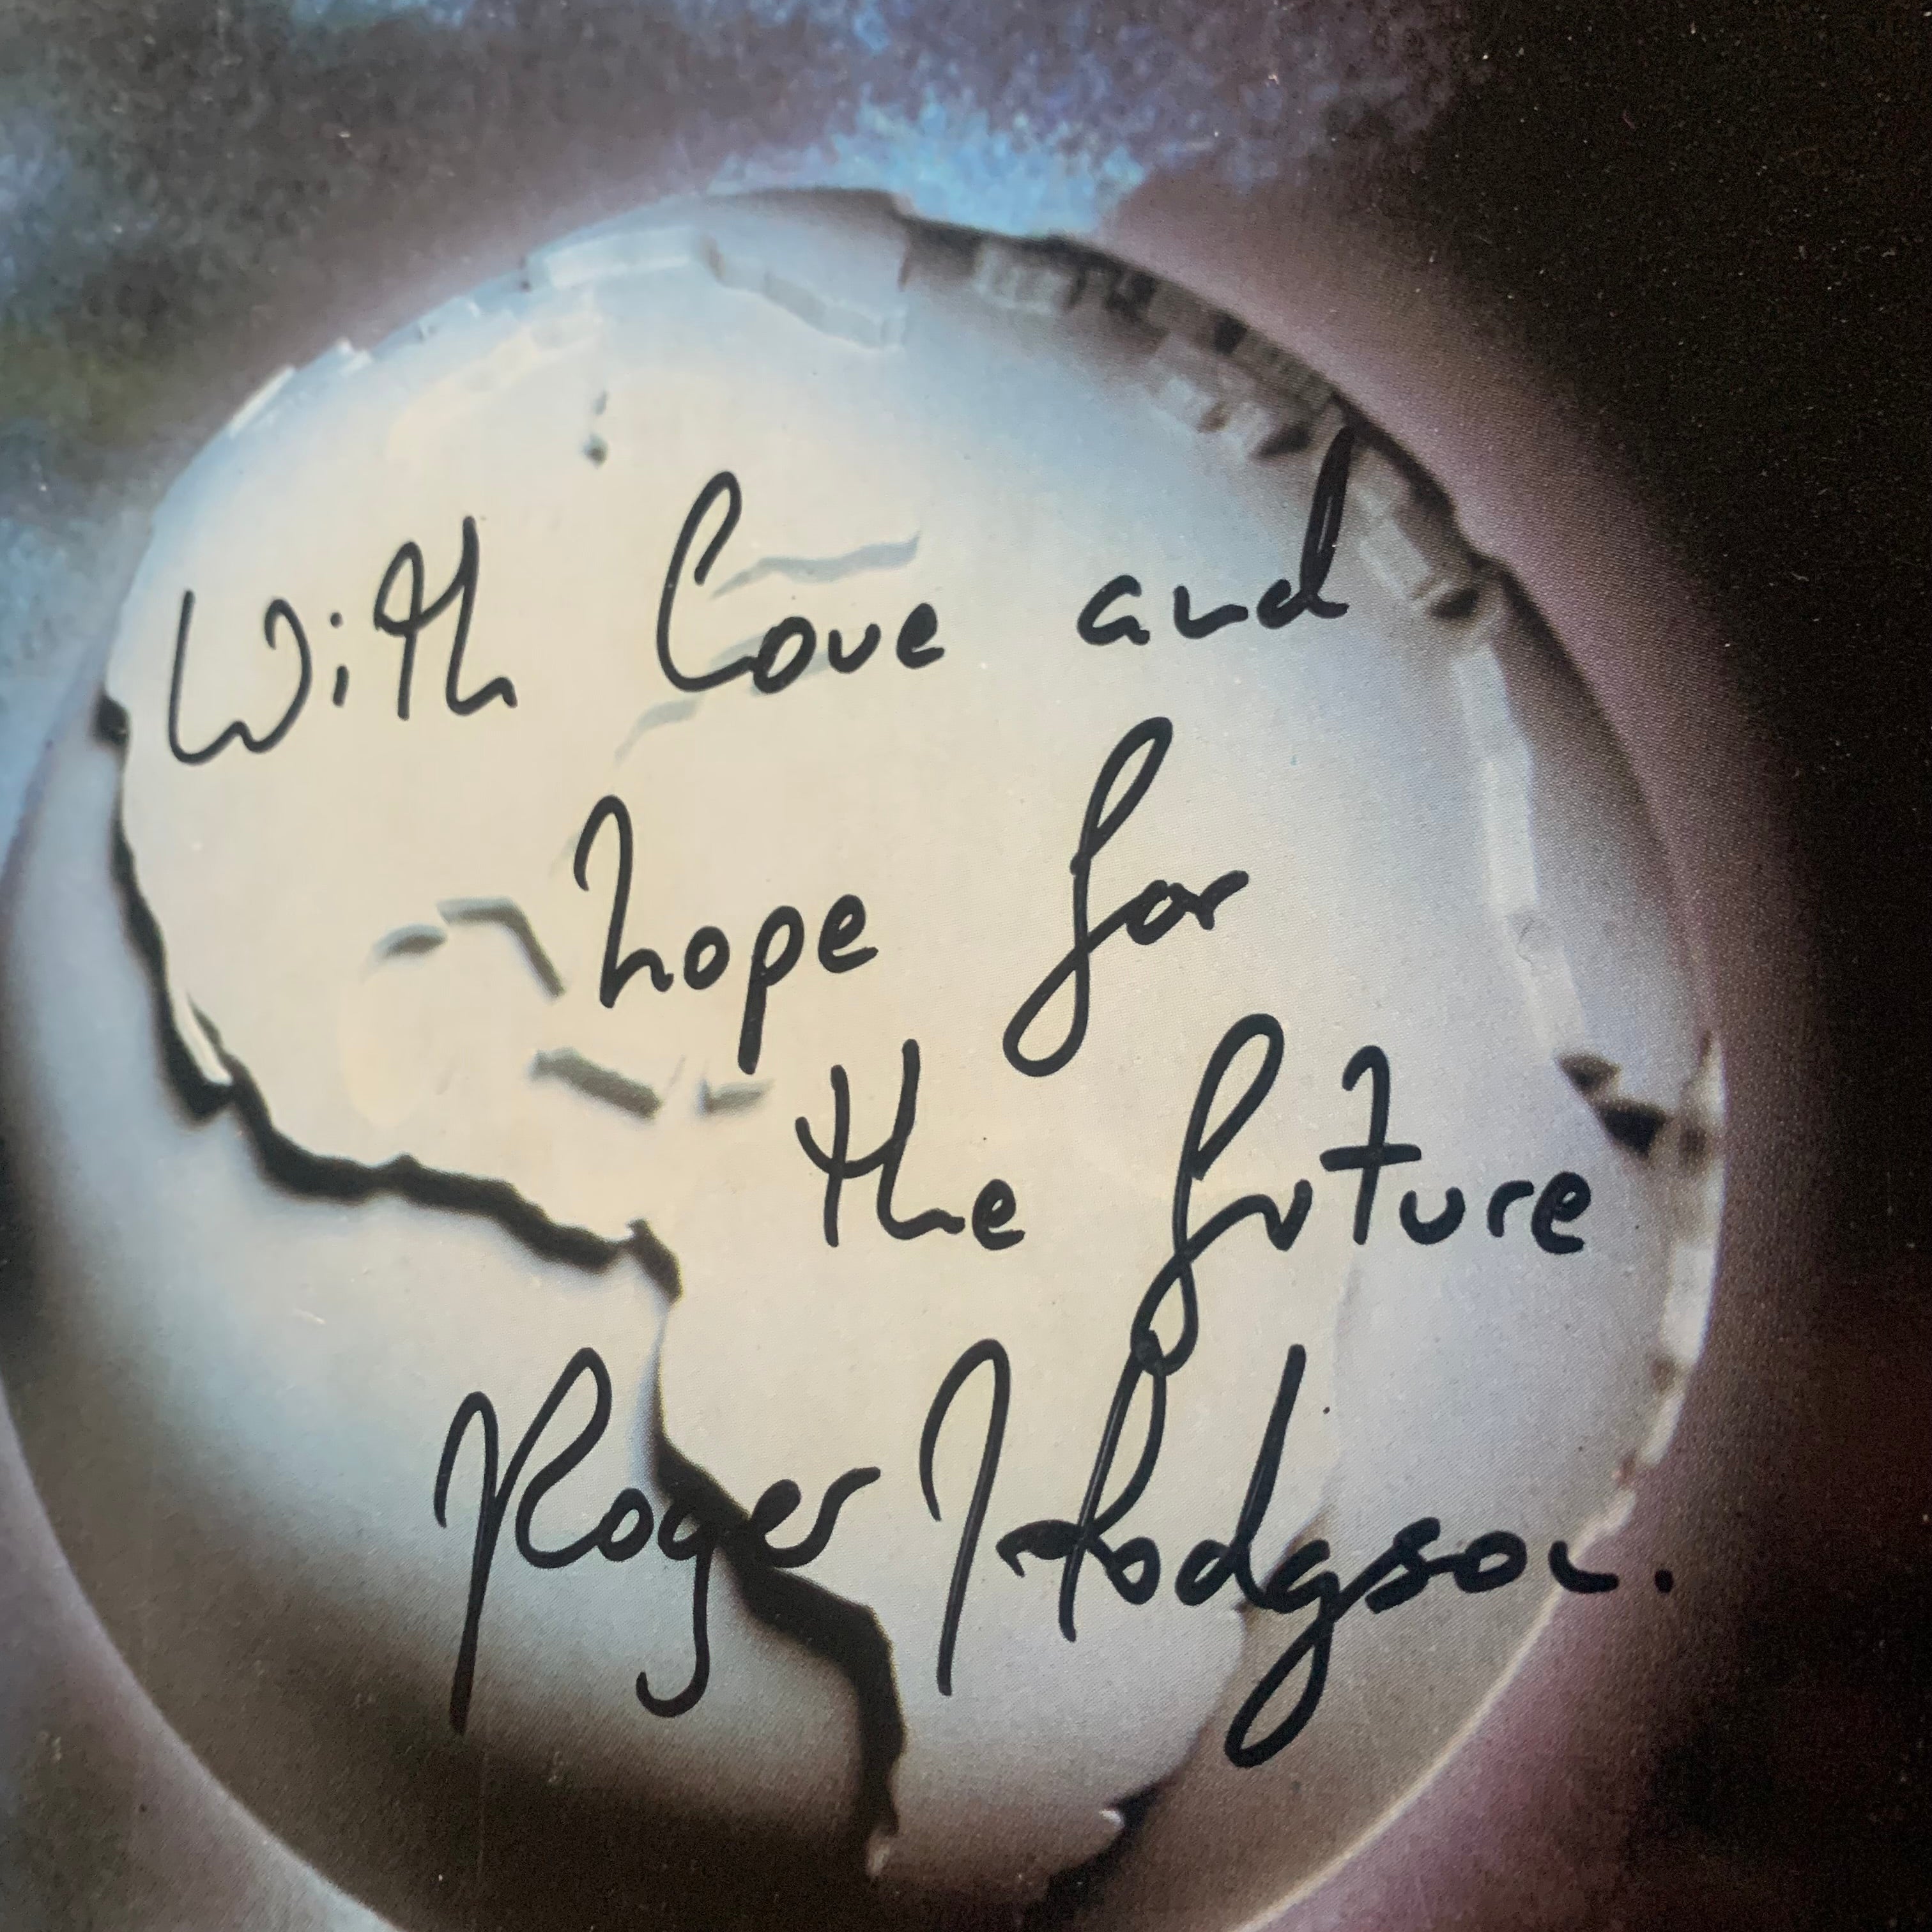 With Love and
hope for
the future
Roger Hodgson.